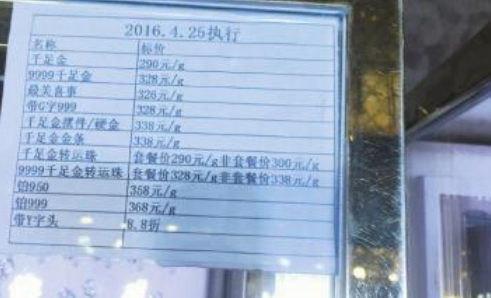 2016.4.25执行
名称 标价
千足金 290元/g
9999千足金 328元/g
最美喜事 328元/g
带G字999 328元/g
千足金摆件/硬金 338元/g
千足金金条 338元/g
千足金转运珠 套餐价290元/g非套餐价300元/g
9999千足金转运珠 套餐价328元/g非套餐价338元/g
铂950 358元/g
铂999 368元/g
带Y字头 8.8折